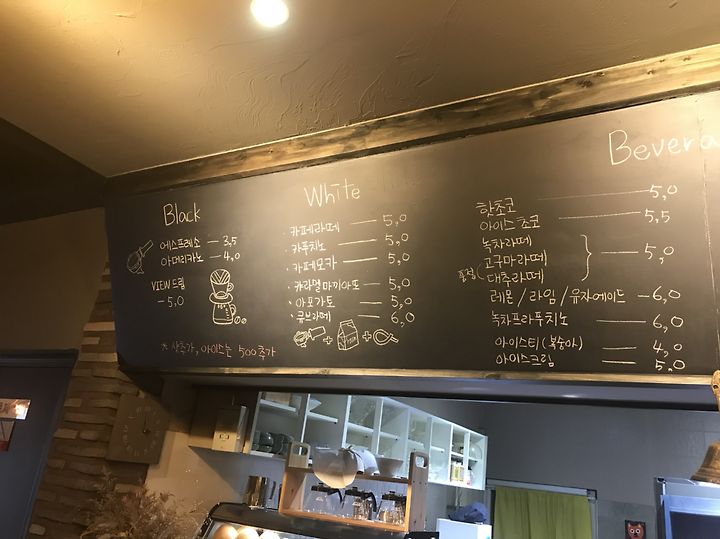 Black
에스프레소 — 3,5
아메리카노 — 4,0
VIEW 드립
- 5,0
* 샷추가, 아이스는 500 추가
White
· 카페라떼 — 5,0
· 카푸치노 — 5,0
· 카페모카 — 5,0
· 카라멜마끼아또 — 5,0
· 아포가토 — 5,0
· 큐브라떼 — 6,0
Bevera
핫초코 — 5,0
아이스초코 — 5,5
녹차라떼
고구마라떼 — 5,0
대추라떼
레몬/라임/유자에이드 - 6,0
녹차프라푸치노 — 6,0
아이스티(복숭아) — 4,0
아이스크림 — 5,0